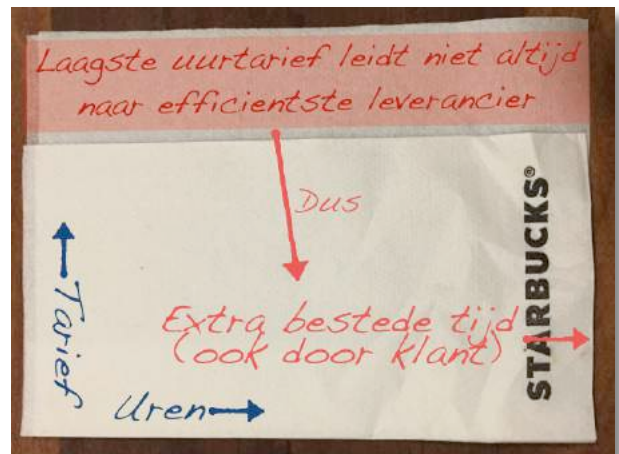 Laagste uurtarief leidt niet altijd
naar efficientste leverancier
Dus
Extra bestede tijd
(ook door klant)
Tarief
Uren
STARBUCKS®